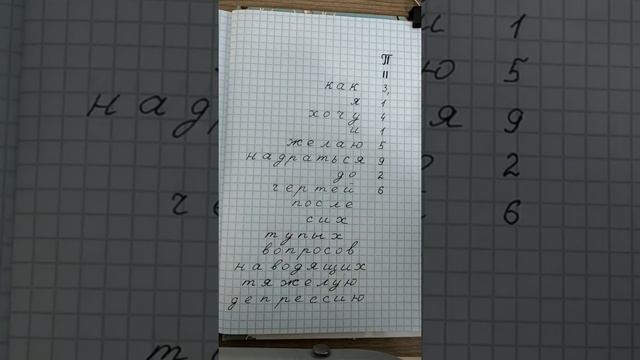 П
=
как 3,
я 1
хочу 4
и 1
желаю 5
надраться 9
до 2
чертей 6
после
сих
тупых
вопросов
наводящих
тяжелую
депрессию